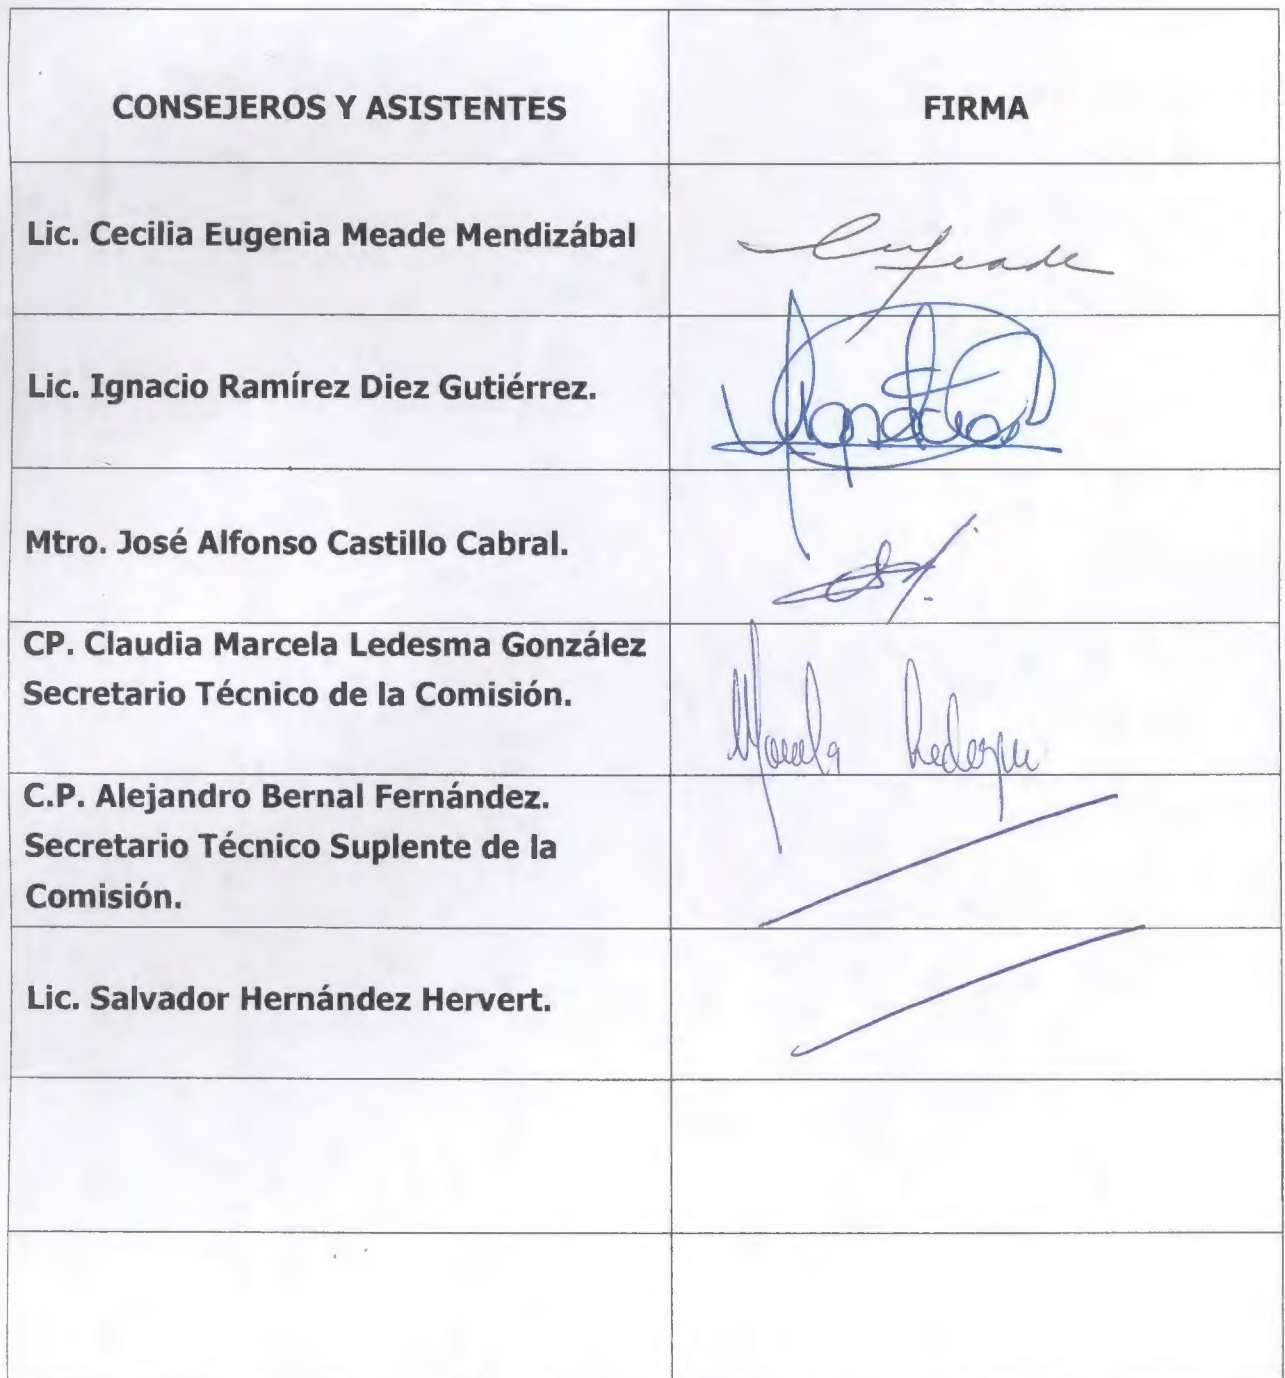 CONSEJEROS Y ASISTENTES FIRMA
Lic. Cecilia Eugenia Meade Mendizábal
Lic. Ignacio Ramírez Diez Gutiérrez. Ignacio
Mtro. José Alfonso Castillo Cabral.
CP. Claudia Marcela Ledesma González
Secretario Técnico de la Comisión.
Marcela Ledesma
C.P. Alejandro Bernal Fernández.
Secretario Técnico Suplente de la
Comisión.
Lic. Salvador Hernández Hervert.